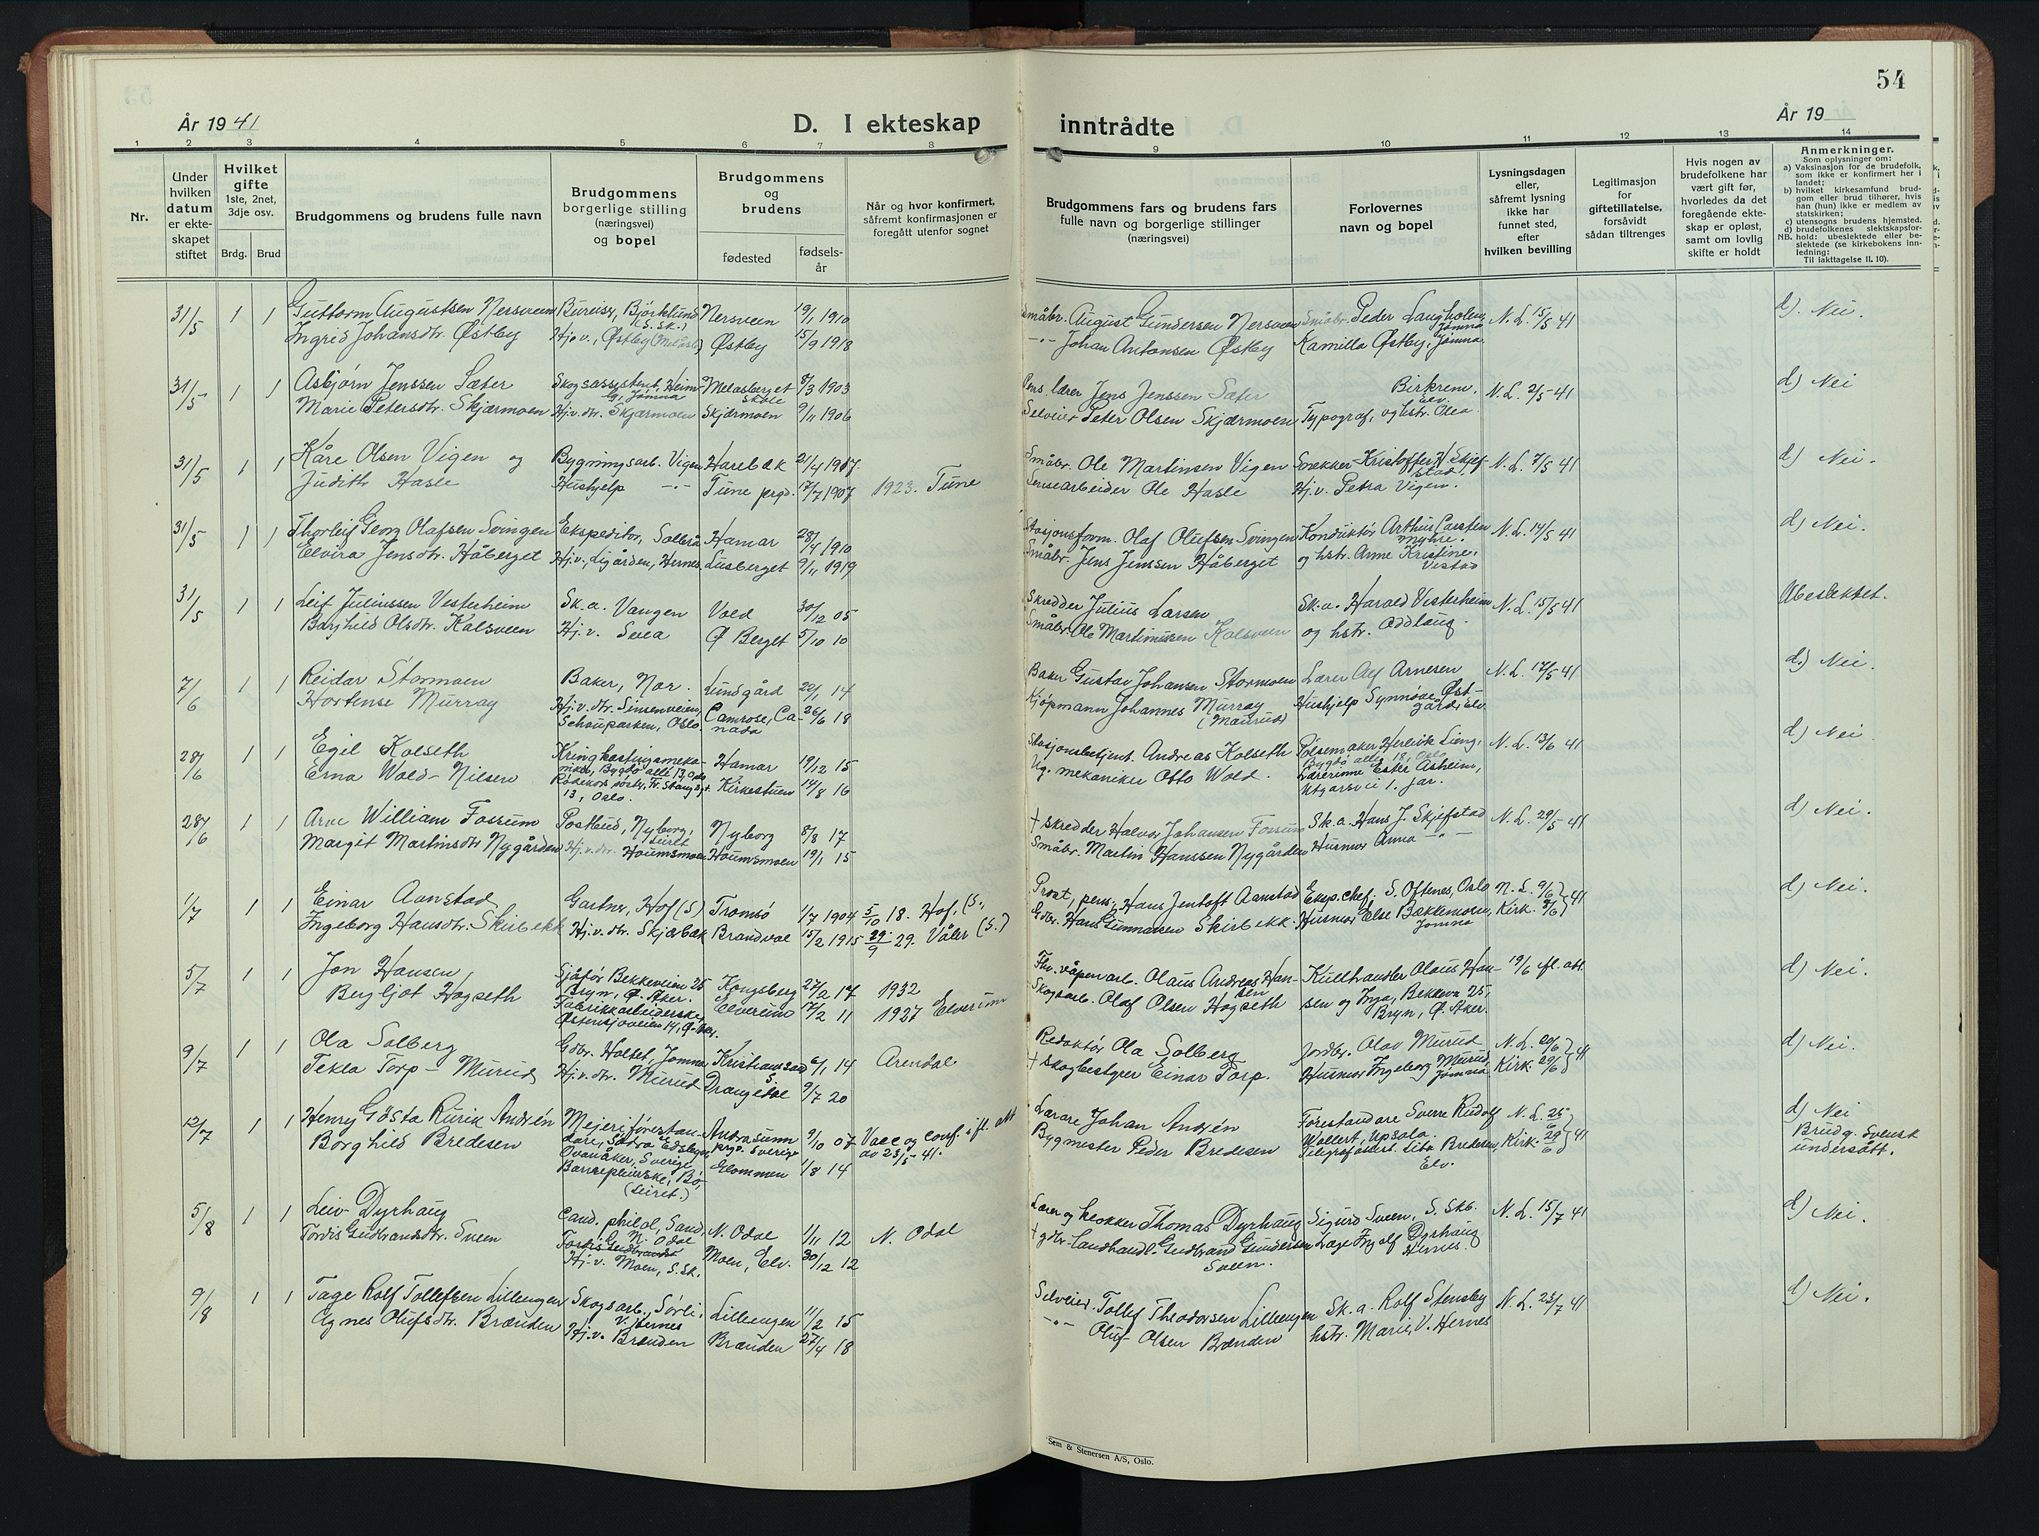 54
År 19 41
D. I ekteskap inntrådte
År 19
1 2 3 4 5 6 7 8 9 10 11 12 13 14
Nr.
Under hvilken datum er ekteskapet stiftet
Hvilket gifte 1ste, 2net, 3dje osv.
Brdg. Brud
Brudgommens og brudens fulle navn
Brudgommens borgerlige stilling (næringsvei) og bopel
Brudgommens og brudens
fødested
fødselsår
Når og hvor konfirmert, såfremt konfirmasjonen er foregått utenfor sognet
Brudgommens fars og brudens fars fulle navn og borgerlige stillinger (næringsvei)
Forlovernes navn og bopel
Lysningsdagen eller, såfremt lysning ikke har funnet sted, efter hvilken bevilling
Legitimasjon for giftetillatelse, forsåvidt sådan tiltrenges
Hvis nogen av brudefolkene har vært gift før, hvorledes da det foregående ekteskap er opløst, samt om lovlig skifte er holdt
Anmerkninger.
Som oplysninger om:
a) Vaksinasjon for de brudefolk, som ikke er konfirmert her i landet;
b) hvilket kirkesamfund brudgom eller brud tilhører, hvis han (hun) ikke er medlem av statskirken;
c) utensogns brudens hjemsted.
d) brudefolkenes slektskapsforhold: ubeslektede eller beslektede (se kirkebokens innledning:
NB. Til iakttagelse II. 10).
31/5 1 1 Guttorm Augustsen Nersveen Bureiser, Bjørklund (S.Sk.) Nersveen 19/1 1910 Småbr. August Gundersen Nersveen Småbr. Peder Langholen, Jømna N.L. 15/5 41 d). Nei.
Ingrid Johansdtr. Østby Hjv., Østby Østby 15/9 1918 -"- Johan Antonsen Østby Kamilla Østby, Jømna.
31/5 1 1 Asbjørn Jenssen Sæter Skogsassistent, Heim-, Jømna Melåsberget skole 8/3 1903 Pens. lærer Jens Jenssen Sæter Birkrem, Elv. N.L. 2/5-41 d) Nei
Marie Petersdtr. Skjærmoen Hj.v.dtr. Skjærmoen Skjærmoen 9/11 1906 Selveier Peter Olsen Skjærmoen Typograf, og hstr. Olea
31/5 1 1 Kåre Olsen Vigen og Bygningsarb. Vigen Harebæk 21/4 1907. Småbr. Ole Martinsen Vigen Snekker Kristoffer H. Skjefstad. N.L. 7/5 41 d) Nei.
Judith Hasle Hushjelp -"- Tune prgd. 17/7 1907 1923. Tune Sensearbeider Ole Hasle Hj.v. Petra Vigen.
31/5 1 1 Thorleif Georg Olafsen Svingen Ekspeditør, Solbrå Hamar 28/4 1910 Stasjonsform. Olaf Olufsen Svingen Konduktør Arthur Carsten Myhre. N.L. 14/5 41 d) Nei.
Elvira Jensdtr. Håberget Hj.v., Ligården, Hernes Lusberget 9/11 1919 Småbr. Jens Jenssen Håberget og hstr. Anne Kristine, Vestad
31/5 1 1 Leif Juliussen Vesterheim Sk.a. Vangen Vold 30/12 05 Skredder Julius Larsen Sk.a. Harald Vesterheim N.L. 15/5 41 Ubeslektet.
Borghild Olsdtr. Kalsveen Hj.v. Svea Ø Berget 5/10 10 Småbr. Ole Martinussen Kalsveen og hstr. Oddlaug.
7/6 1 1 Reidar Stormoen Baker, Nor. Lundgård 22/1 14 Baker Gustav Johansen Stormoen Lærer Alf Arnesen N.L. 17/5 41 d.) Nei.
Hortense Murray Hj.v.dtr. Sinsenveien, Schouparken, Oslo. Camrose, Canada 26/6 18 Kjøpmann Johannes Murray (Maurud) Hushjelp Synnøve Østgård, Elv.
28/6 1 1 Egil Kolseth Kringkastingsmekaniker, Bygdø alle 13, Oslo Hamar 19/12 15 Stasjonsbetjent Andreas Kolseth Pølsemaker Henrik Lieng, Bygdø alle 18, Oslo N.L. 13/6 41 d) Nei.
Erna Wold-Nilsen 13, Oslo. Kirkestuen 14/8 16 mekaniker Otto Wold. Lærerinne Ester Åsheim,
28/6 1 1 Arve William Fossum Postbud, Nyborg, Leiret Nyborg 8/8 17 + Skredder Halvor Johansen Fossum Sk.a. Hans J. Skjefstad N.L. 29/5 41 d) Nei.
Margit Martinsdtr Nygården Hj.v.dtr. Houmsmoen Houmsmoen 19/1 15 Småbr. Martin Hanssen Nygården Husmor Anna -"-
1/7 1 1 Einar Aanstad Gartner, Hof (S) Tromsø 1/7 1904 5/10 18. Hof, (S., Prost, pens. Hans Jentoft Aanstad Eksp.chef, S. Oftenes, Oslo N.L. 9/6 } 41 d) Nei.
Ingeborg Hansdtr. Skirbekk Hj.v.dtr. Skjæbæk Brandval 15/2 1915 29/9 29. Våler (S.) Gdbr. Hans Gunnarsen Skirbekk Husmor Else Bækkemoen, Jømna Kirk. 9/6
5/7 1 1 Jon Hansen, Sjåfør Bekkeveien 25 Bryn, Ø. Aker. Kongsberg 27/2 17 1932 Fhv. våpenarb. Olaus Andreas Hansen Kullhandler Olaus Hansen 19/6 fl. att. d) Nei.
Bergljot Hogseth Fabrikkarbeiderske, Østensjøveien 14, Ø. Aker. Elverum 17/2 11 1927 Elverum Skogsarb. Olaf Olsen Hogseth og Inga, Bekkevn 25, Bryn, Ø. Aker.
9/7 1 1 Ola Solberg Gdbr. Holtet, Jømna Kristiansand S. 6/1 14 Arendal Redaktør Ola Solberg Jordbr. Olav Murud N.L. 20/6 } 41 d) Nei.
Tekla Torp-Murud Hj.v.dtr. Murud Drangedal 9/7 20 + skogbestyrer Einar Torp. Husmor Ingeborg Murud, Jømna Kirk. 20/6
12/7 1 1 Henry Gösta Rurik Andrén Mejeriförestandare, Södra Edsbyn, Ovanåker, Sverige Andrasunn prgv. Sverige 9/10 07 Vacc og conf. i fl. att av 23/5-41. Lärare Johan Andrén Förestandare Sverre Rudolf Wallert, Upsala. N.L. 26/6 } 41 d) Nei Brudg. Svensk undersått.
Borghild Bredesen Barnepleierske, Bo, (Leiret.) Glommen 1/8 14 Bygmester Peder Bredesen Telegrafassist. Lita Bredesen, Elv. Kirk. 29/6
5/8 1 1 Leiv Dyrhaug Cand. philol, Sand, N. Odal N. Odal 1/11 12 N. Odal Lærer og klokker Thomas Dyrhaug Sigurd Sveen, S. Skb. N.L. 15/7 41 d) Nei.
Tordis Gudbrandsdtr. Sveen Hj.v. Moen, S.Sk. Moen, Elv. 30/12 12 + gbr. Landhandl. Gudbrand Gundersen Sveen. Lage Ingolf Dyrhaug Hernes.
9/8 1 1 Tage Rolf Tollefsen Lillengen Skogsarb., Sørli, V. Hernes Lillengen 11/2 15 Selveier Tollef Theodorsen Lillengen Sk.a. Rolf Stensby N.L. 23/7 41 d) Nei.
Agnes Olufsdtr. Brænden Hj.v. Brænden Brænden 27/4 18 -"- Oluf Olsen Brænden hstr. Marie, V. Hernes
Sem & Stenersen A/S, Oslo.